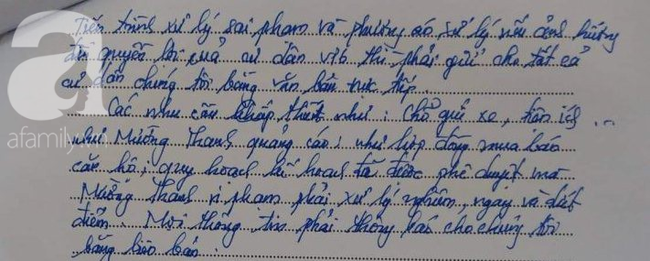 Tiến trình xử lý sai phạm và phương án xử lý nếu ảnh hưởng
đến quyền lợi của cư dân V76 thì phải gửi cho tất cả
cư dân chúng tôi bằng văn bản trực tiếp.
Các nhu cầu thiết như: Chỗ gửi xe, tiện ích
như Mường Thanh quảng cáo; như hợp đồng mua bán
căn hộ; quy hoạch đã được phê duyệt mà
Mường Thanh vi phạm phải xử lý nghiêm, ngay và dứt
điểm. Mọi thông tin phải thông báo cho chúng tôi
bằng
a
afamily.vn